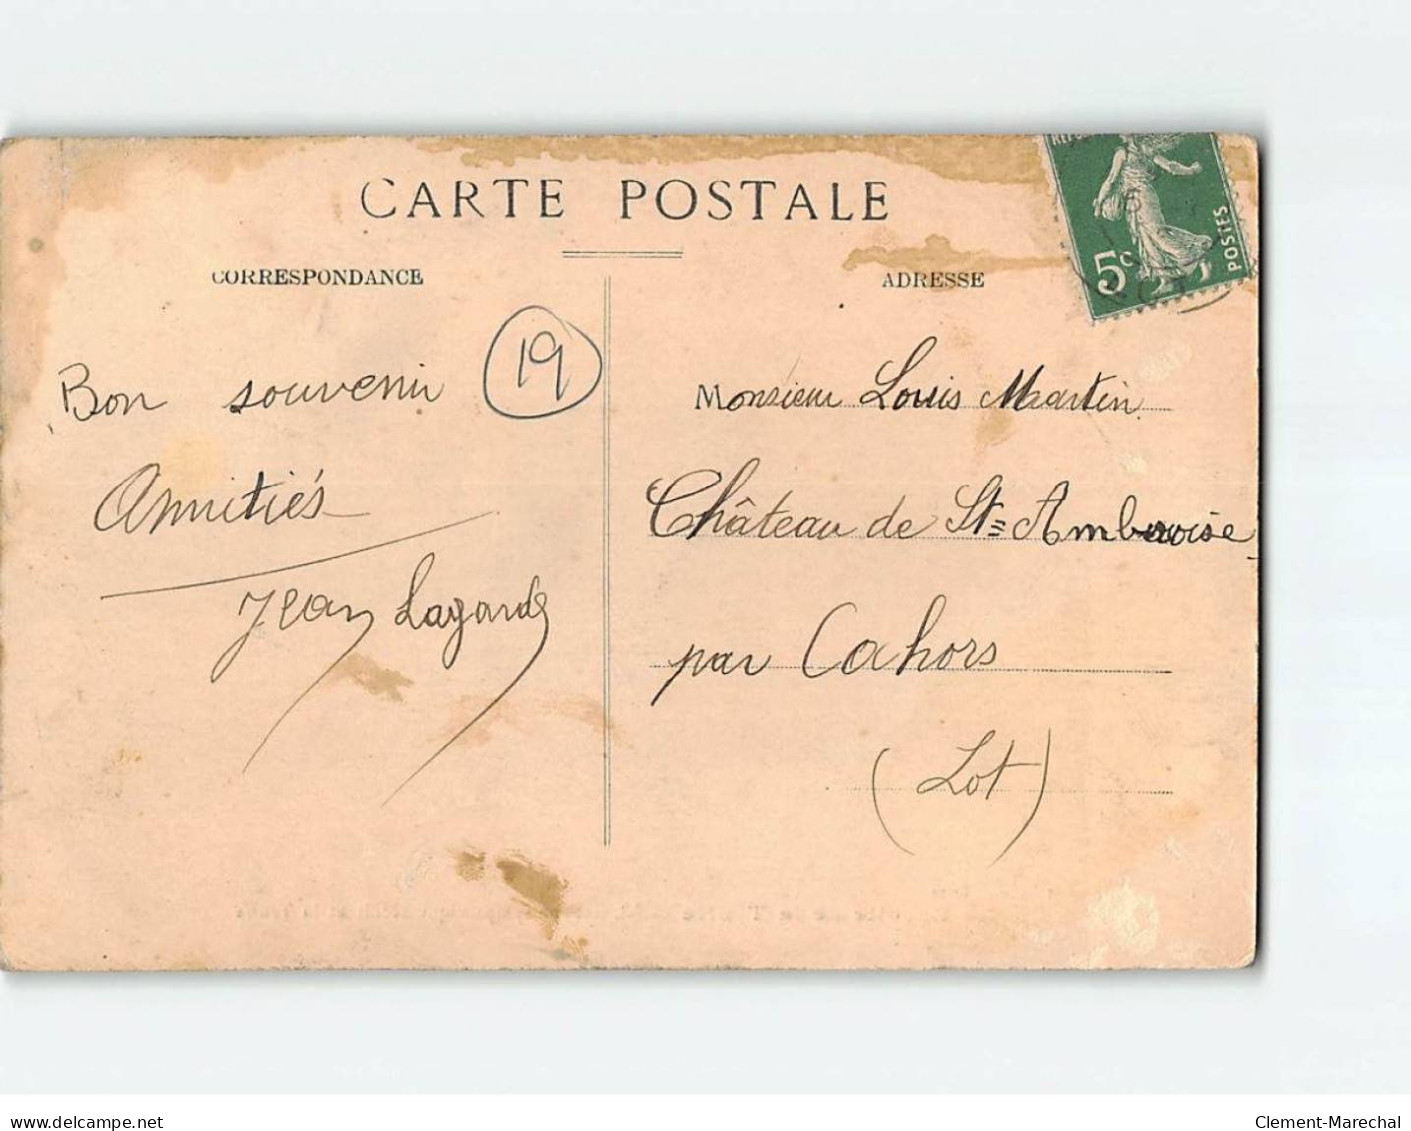 CARTE POSTALE
CORRESPONDANCE
ADRESSE
5c
POSTES
19
Bon souvenir
Amitiés
Jean Lagarde
Monsieur Louis Martin
Château de St= Ambroise
par Cahors
(Lot)
www.delcampe.net
Clement-Marechal